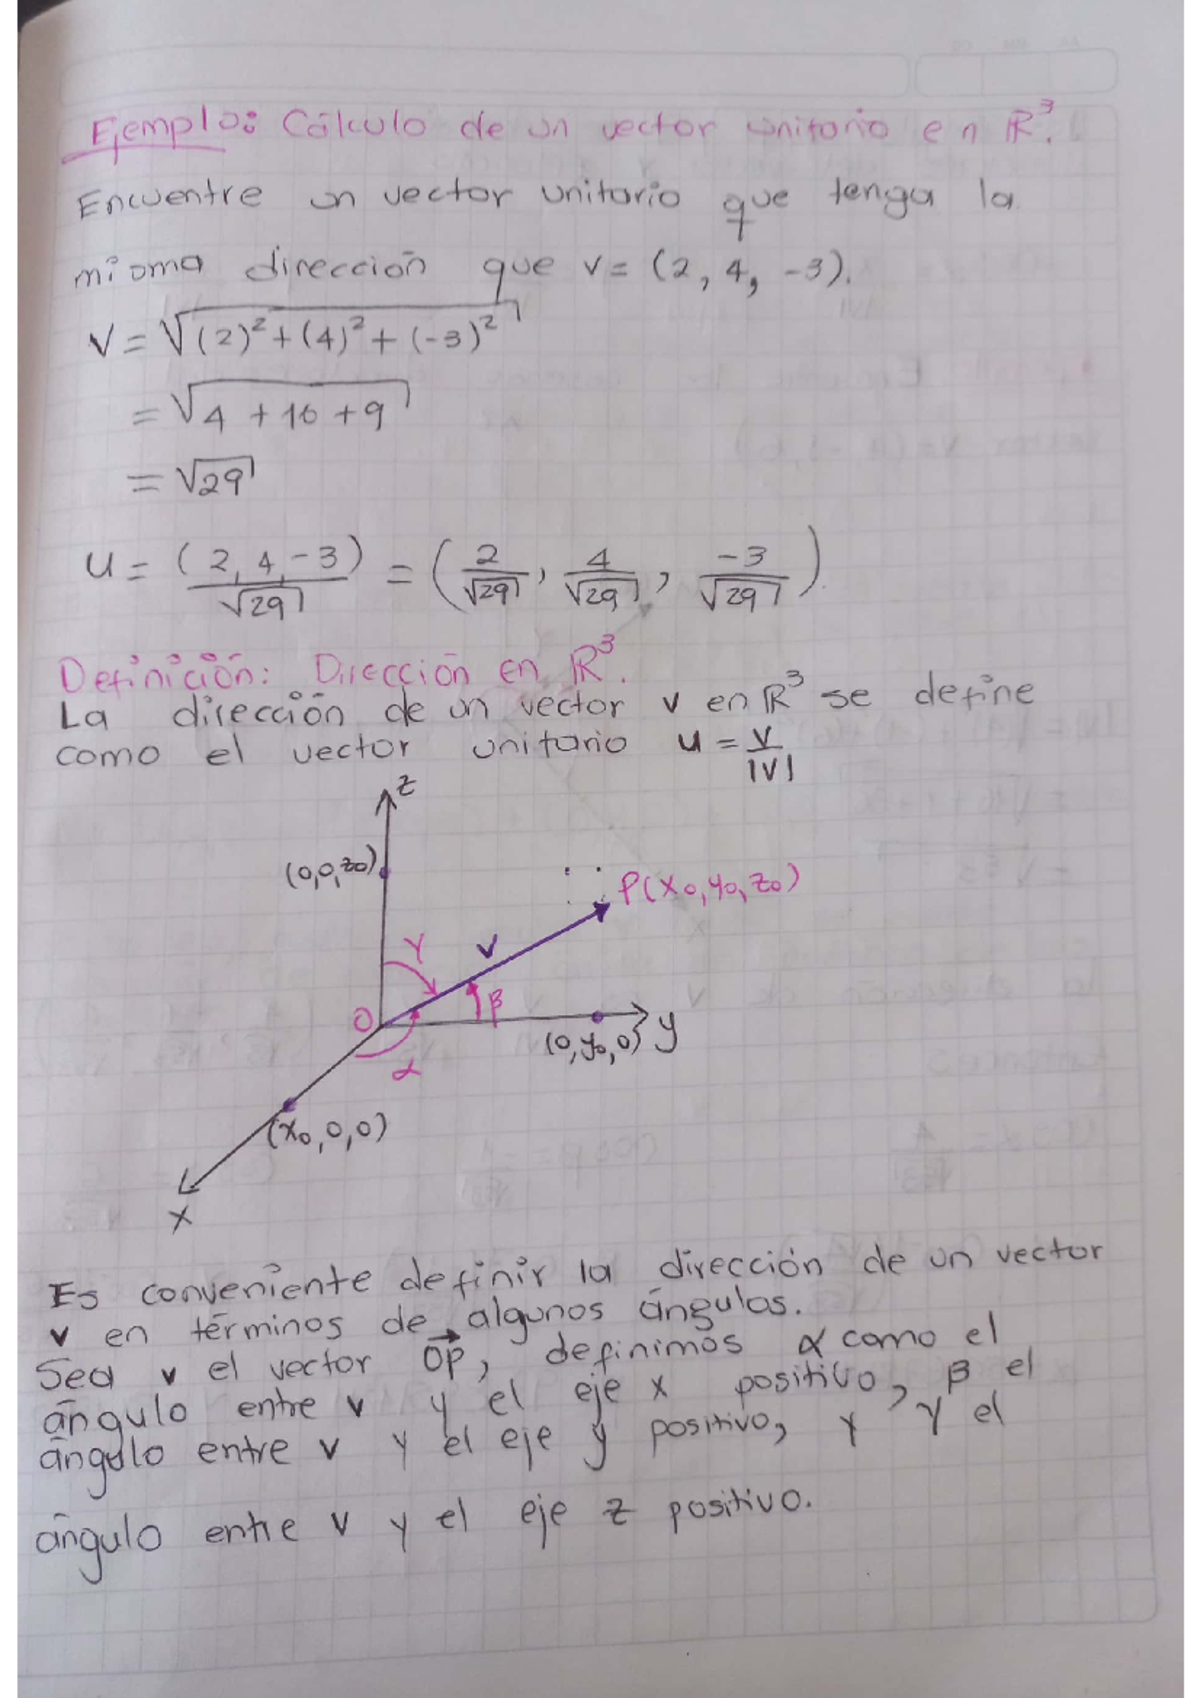 Ejemplo: Cálculo de un vector unitario en ℝ³.
Encuentre un vector unitario que tenga la
misma dirección que v= (2, 4, -3).
V = √(2)²+(4)²+(-3)²
= √4 + 16 + 9
= √29
u = (2, 4, -3)/√29 = (2/√29, 4/√29, -3/√29)
Definición: Dirección en ℝ³.
La dirección de un vector v en ℝ³ se define
como el vector unitario u = v/|v|
z
(0,0,z₀)
P(x₀,y₀,z₀)
γ
v
β
O
(0,y₀,0) y
α
(x₀,0,0)
x
Es conveniente definir la dirección de un vector
v en términos de algunos ángulos.
Sea v el vector OP⃗, definimos α como el
ángulo entre v y el eje x positivo, β el
ángulo entre v y el eje y positivo, y γ el
ángulo entre v y el eje z positivo.